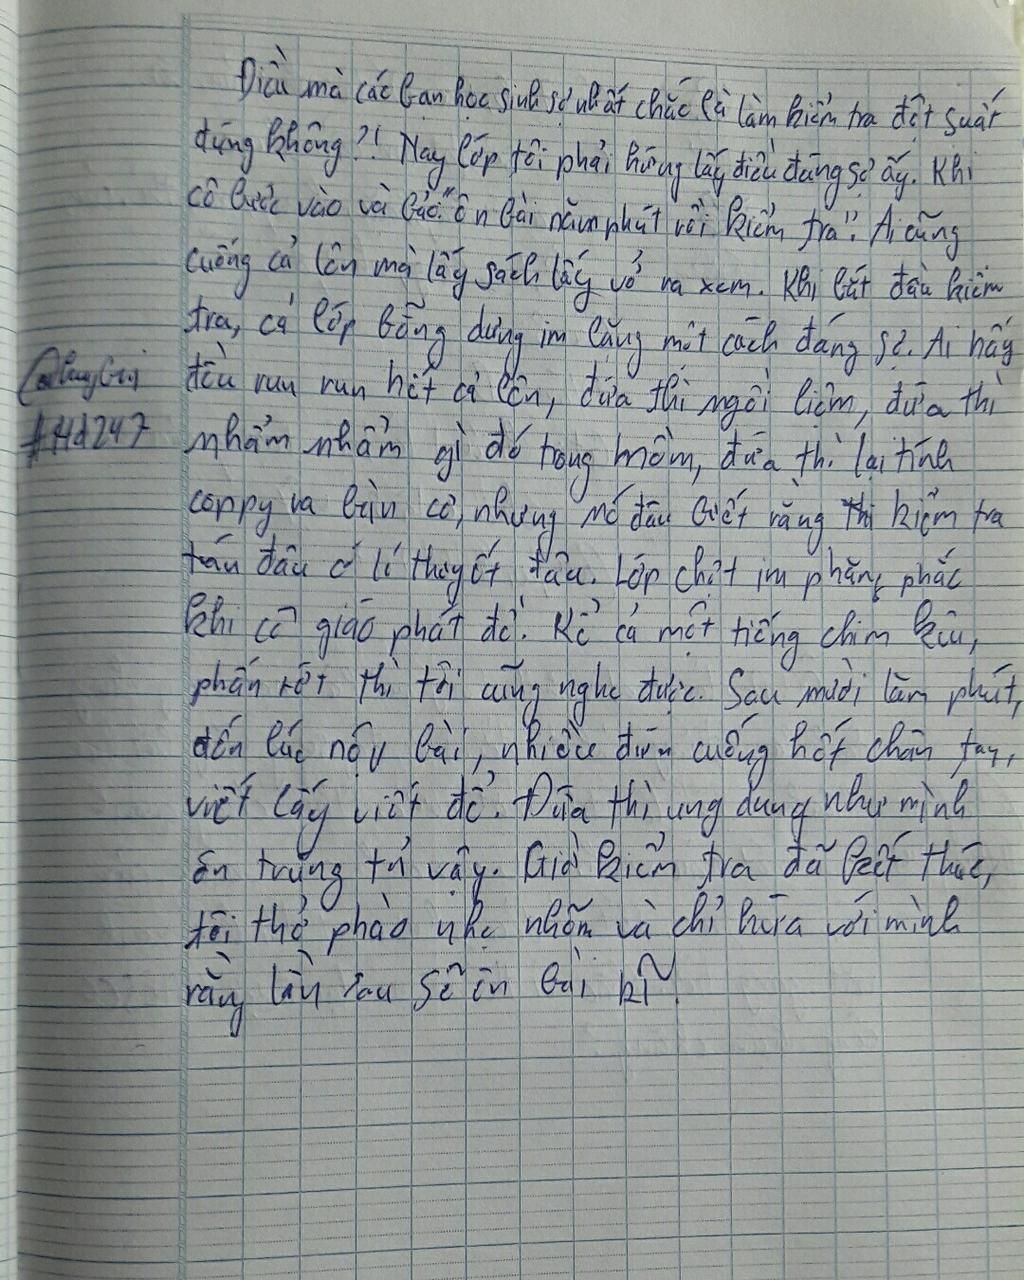 Điều mà các bạn học sinh sợ nhất chắc là làm kiểm tra đột suất
đúng không?! Nay lớp tôi phải hứng lấy điều đáng sợ ấy. Khi
cô bước vào và bảo: "ôn bài năm phút rồi kiểm tra". Ai cũng
cuống cả lên mà lấy sách lấy vở ra xem. Khi bắt đầu kiểm
tra, cả lớp bỗng dưng im lặng một cách đáng sợ. Ai nấy
đều run run hết cả lên, đứa thì ngồi liệm, đứa thì
#Hd247
nhẩm nhẩm gì đó trong mồm, đứa thì lại tính
coppy ra bàn cơ, nhưng nó đâu biết rằng thi kiểm tra
toán đâu có lí thuyết đâu. Lớp chợt im phăng phắc
khi cô giáo phát đề. Kể cả một tiếng chim kêu,
phấn rớt thì tôi cũng nghe được. Sau mười lăm phút,
đến lúc nộp bài, nhiều đứa cuống hết chân tay,
viết lấy viết để. Đứa thì ung dung như mình
ăn trứng tủ vậy. Giờ kiểm tra đã kết thúc,
tôi thở phào nhẹ nhõm và chỉ hứa với mình
rằng lần sau sẽ ôn bài kĩ